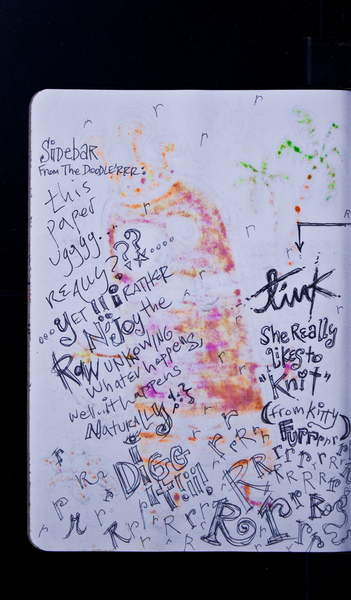 Sidebar
From The Doodle'rrr:
this
paper
ugggg...
REALLY??
...yet iii RATHER
N'Joy the
Raw unknowing
whatever happens,
well..it happens
Naturally
iDigg
it!ii!
tink
She Really
likes to
"Knit"
(from kitty
Furrrrr)
r
r
r
r
r
r
r
R
R
r
R r R r